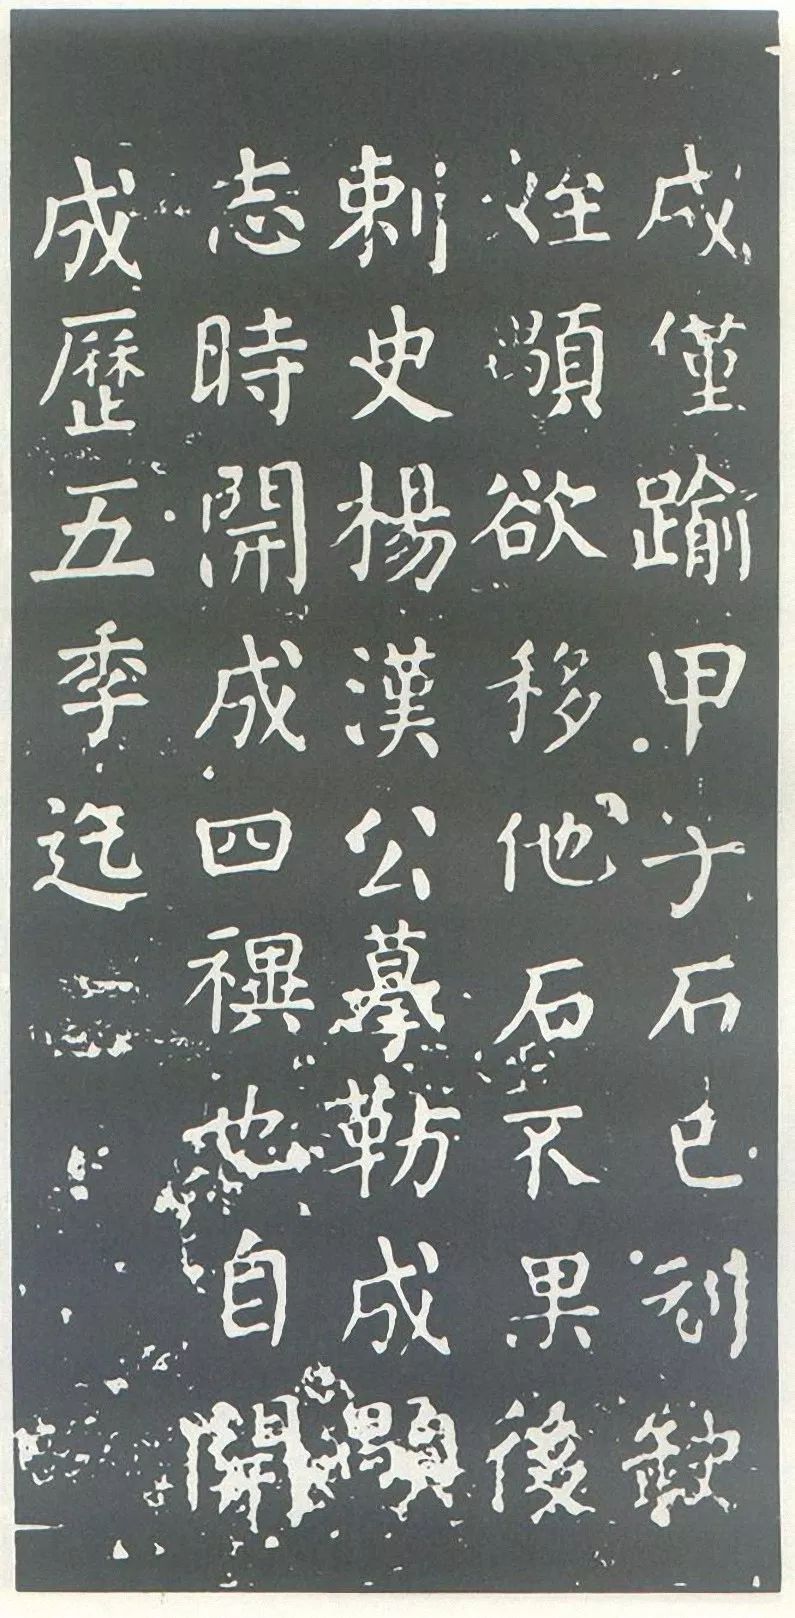 成僅踰甲子石已刓缺
姪顒欲移他石不果後
刺史楊漢公摹勒成顒
志時開成四禩也自開
成歷五季迄